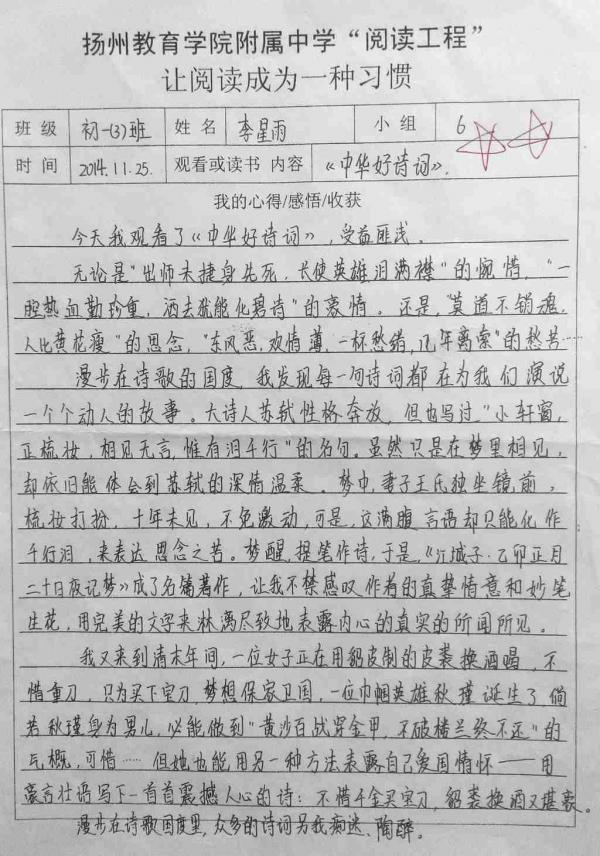 扬州教育学院附属中学“阅读工程”
让阅读成为一种习惯
班 级 初一(3)班 姓 名 李星雨 小 组 6
时 间 2014.11.25. 观看或读书 内容 《中华好诗词》.
我的心得/感悟/收获
今天我观看了《中华好诗词》，受益匪浅.
无论是“出师未捷身先死，长使英雄泪满襟”的惋惜，“一
腔热血勤珍重，洒去犹能化碧诗”的豪情。还是，“莫道不销魂，
人比黄花瘦”的思念，“东风恶，欢情薄，一杯愁绪，几年离索”的愁苦……
漫步在诗歌的国度，我发现每一句诗词都在为我们演说
一个个动人的故事。大诗人苏轼性格奔放，但也写过“小轩窗，
正梳妆，相见无言，惟有泪千行”的名句。虽然只是在梦里相见，
却依旧能体会到苏轼的深情温柔。梦中，妻子王氏独坐镜前，
梳妆打扮，十年未见，不免激动，可是，这满腹言语却只能化作
千行泪，来表达思念之苦。梦醒，提笔作诗，于是，《江城子·乙卯正月
二十日夜记梦》成了名篇著作，让我不禁感叹作者的真挚情意和妙笔
生花，用完美的文字来淋漓尽致地表露内心的真实的所闻所见。
我又来到清末年间，一位女子正在用貂皮制的皮裘换酒喝，不
惜重刀，只为买下宝刀，梦想保家卫国，一位巾帼英雄秋瑾诞生了，倘
若秋瑾身为男儿，必能做到“黄沙百战穿金甲，不破楼兰终不还”的
气概，可惜……但她也能用另一种方法表露自己爱国情怀——用
豪言壮语写下一首首震撼人心的诗：不惜千金买宝刀，貂裘换酒又堪豪。
漫步在诗歌国度里，众多的诗词另我痴迷、陶醉。